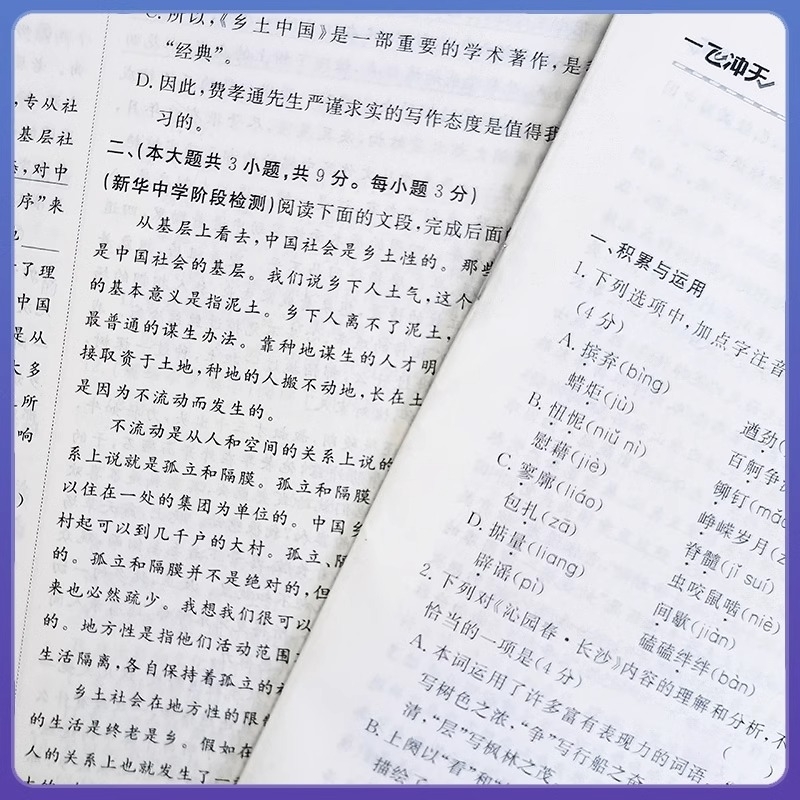 ,专从社
基层社
,对中
序”来
了理
中国
是从
多
所
响
)
C.所以,《乡土中国》是一部重要的学术著作,是
“经典”。
D.因此,费孝通先生严谨求实的写作态度是值得我
习的。
二、(本大题共3小题,共9分。每小题3分)
(新华中学阶段检测)阅读下面的文段,完成后面的
从基层上看去,中国社会是乡土性的。那些
是中国社会的基层。我们说乡下人土气,这个
的基本意义是指泥土。乡下人离不了泥土,
最普通的谋生办法。靠种地谋生的人才明
接取资于土地,种地的人搬不动地,长在土
是因为不流动而发生的。
不流动是从人和空间的关系上说的
系上说就是孤立和隔膜。孤立和隔膜
以住在一处的集团为单位的。中国乡
村起可以到几千户的大村。孤立、隔
的。孤立和隔膜并不是绝对的,但
来也必然疏少。我想我们很可以
的。地方性是指他们活动范围
生活隔离,各自保持着孤立的
乡土社会在地方性的限
的生活是终老是乡。假如在
人的关系上也就发生了一
一飞冲天
一、积累与运用
1.下列选项中,加点字注音
(4分)
A.摈弃(bìng)
遒劲(
蜡炬(jù)
百舸争
B.忸怩(niǔ nì)
铆钉(mǎo
慰藉(jiè)
峥嵘岁月(z
C.寥廓(liáo)
脊髓(jǐ suí)
包扎(zā)
虫咬鼠啮(niè
D.掂量(liang)
间歇(jiàn)
辟谣(pì)
磕磕绊绊(bàn)
2.下列对《沁园春·长沙》内容的理解和分析,不
恰当的一项是(4分)
( )
A.本词运用了许多富有表现力的词语,
写树色之浓,“争”写行船之奋
清,“层”写枫林之茂
B.上阕以“看”和
描绘了